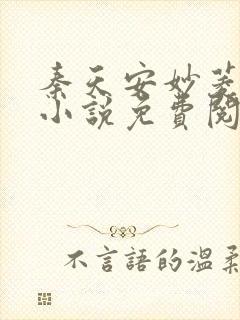 秦天安妙菱
小説免費閱
不言語的温柔